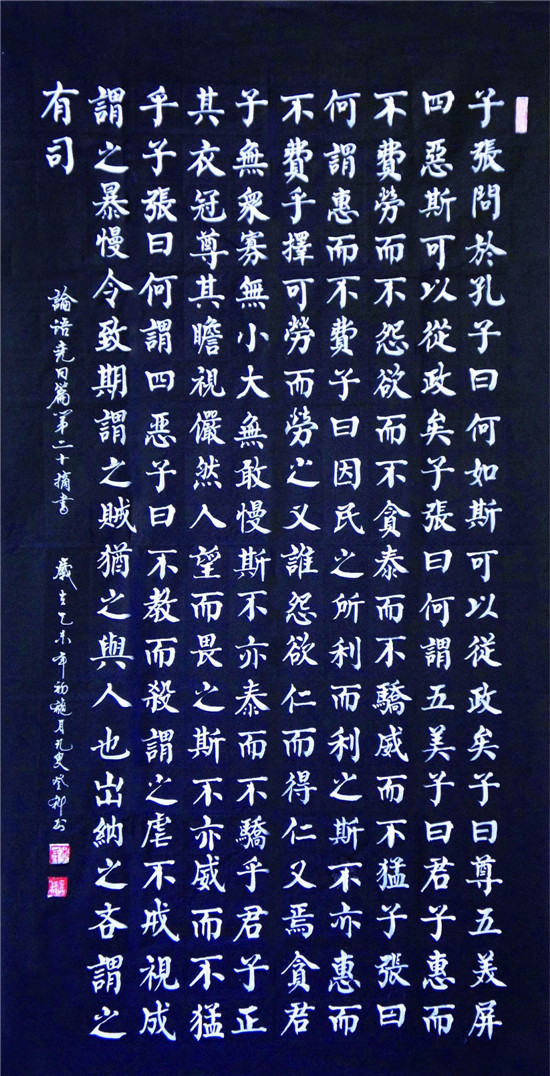 子張問於孔子曰何如斯可以從政矣子曰尊五美屏
四惡斯可以從政矣子張曰何謂五美子曰君子惠而
不費勞而不怨欲而不貪泰而不驕威而不猛子張曰
何謂惠而不費子曰因民之所利而利之斯不亦惠而
不費乎擇可勞而勞之又誰怨欲仁而得仁又焉貪君
子無衆寡無小大無敢慢斯不亦泰而不驕乎君子正
其衣冠尊其瞻視儼然人望而畏之斯不亦威而不猛
乎子張曰何謂四惡子曰不教而殺謂之虐不戒視成
謂之暴慢令致期謂之賊猶之與人也出納之吝謂之
有司
論語堯曰篇第二十摘書 歲在乙未年初